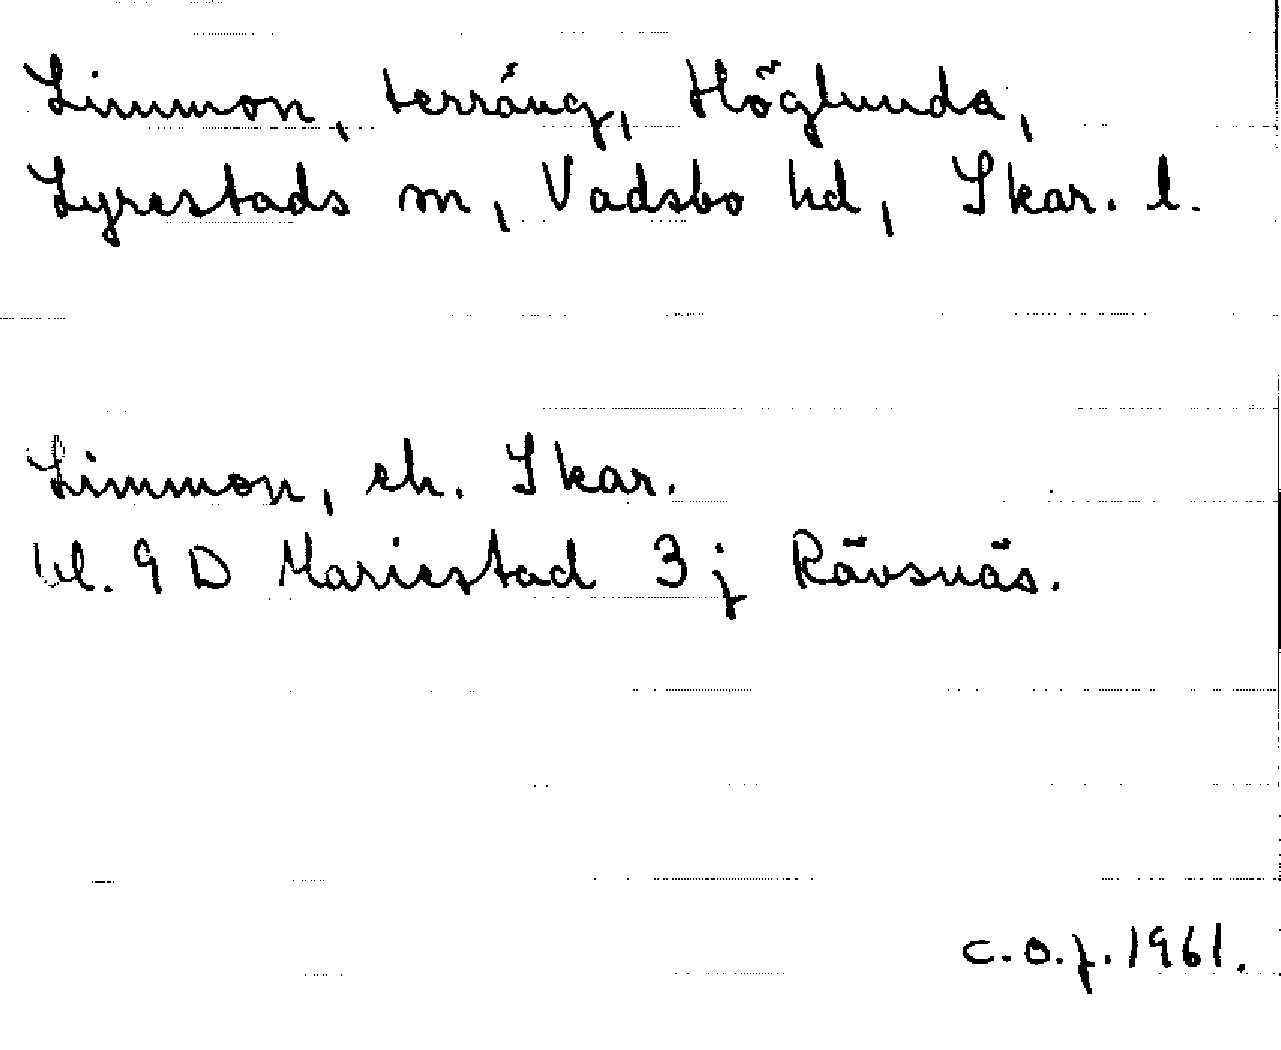 Limmon, terräng, Höglunda,
Lyrestads sn, Vadsbo hd, Skar. l.
Limmon, ek. Skar.
bl. 9 D Mariestad 3 j Rävsnäs.
c.o.f. 1961.